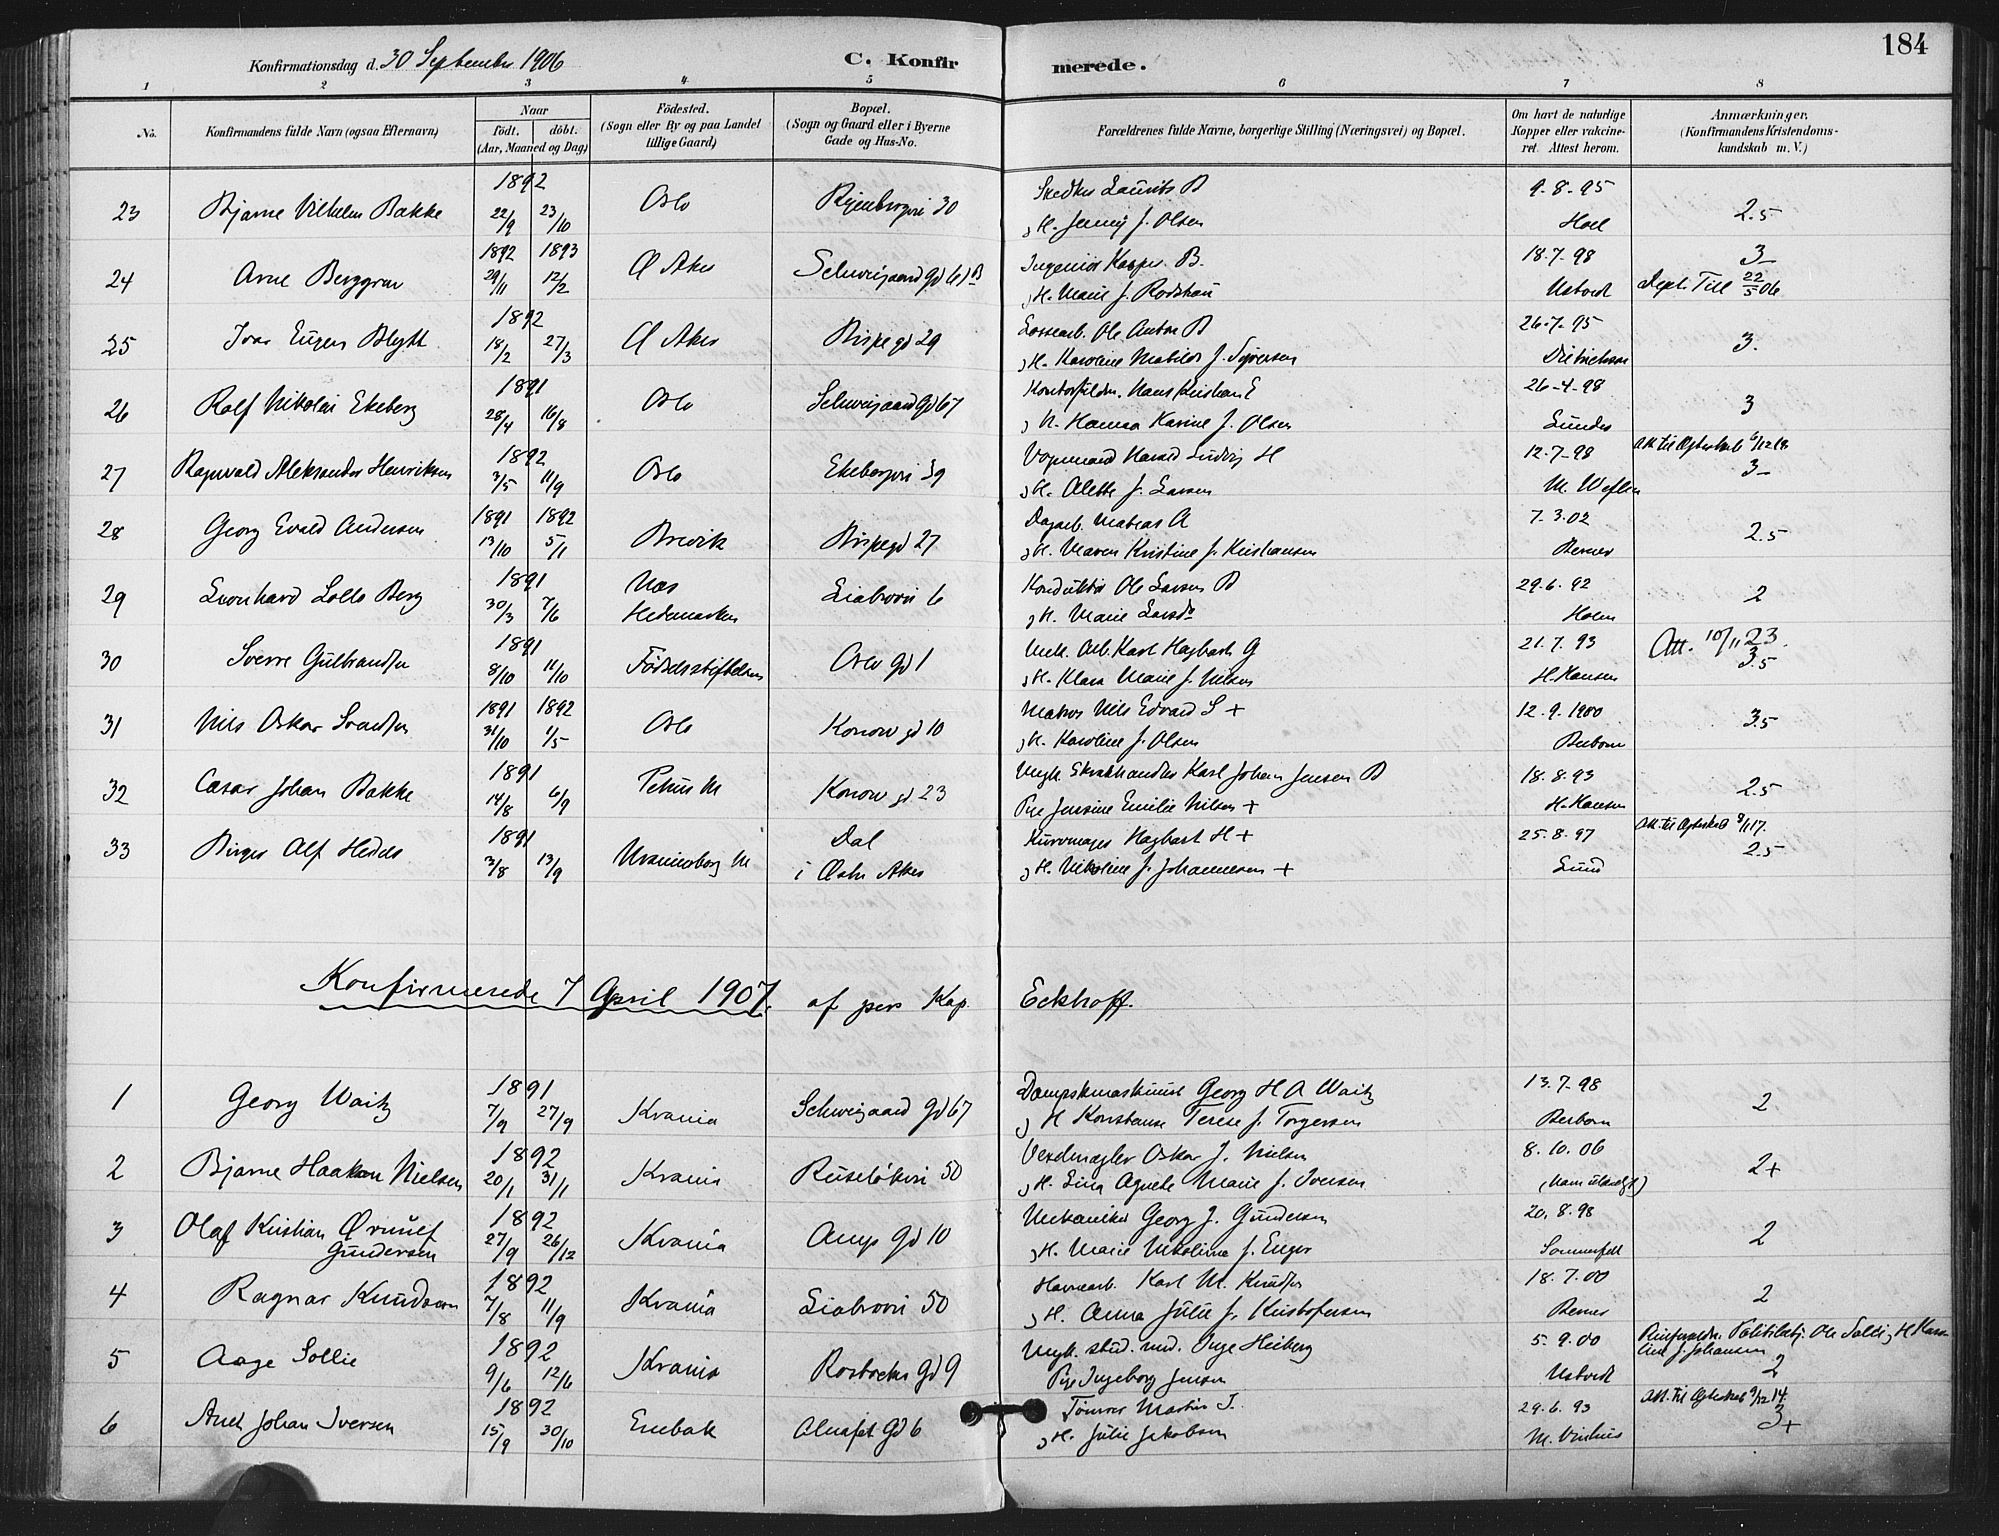 184
Konfirmationsdag d. 30 September 1906 C. Konfirmerede.
1 2 3 4 5 6 7 8
No. Konfirmandens fulde Navn (ogsaa Efternavn) Naar født. døbt. (Aar, Maaned og Dag) Fødested. (Sogn eller By og paa Landet tillige Gaard) Bopæl. (Sogn og Gaard eller i Byerne Gade og Hus-No. Forældrenes fulde Navne, borgerlige Stilling (Næringsvei) og Bopæl. Om havt de naturlige Kopper eller vakcineret. Attest herom. Anmærkninger. (Konfirmandens Kristendomskundskab m. V.)
1892 Laurits B 9-8-95
23 Bjarne Vilhelm Bakke 22/9 23/10 Oslo 30 H. Jenny f. Olsen Hoel 2.5
1892 1893 Ingeniør B. 18.7-98 3
24 Arne Berggrav 29/11 12/2 Ø Aker Schweigaard gd 61 B H. Marie f. Ustvedt Till 22/5 06
1892 Ole Anton B 26-7-95
25 Ivar Eugen Blytt 18/2 27/3 Ø Aker Bispegd 29 H. Karoline Matilde f. Syversen Dietrichson 3.
1891 Hans Kristian E 26-4-98
26 Rolf Nikolai Ekeberg 28/4 16/8 Oslo Schweigaard Gd 67 H. Hanna Karine f. Olsen Lunder 3
1892 Vognmand Harald Ludvig H 12-7-98 Att. til Ægteskab
27 Ragnvald Aleksander Henriksen 3/5 11/9 Oslo Ekebergvei 39 H. Alette f. Larsen M. 3
1891 1892 Dagarb. Matias A 7-3.02
28 Georg Evald Andersen 13/10 5/1 Brevik Bispegd 27 H. Maren Kristine f. Kristiansen Berner 2.5
1891 Næs Konduktør Ole Larsen B 29.6.92
29 Leonhard Lolls Berg 30/3 7/6 Hedemarken Liabrovei 6 H. Marie Larsdtr Holm 2
1891 Mek. Arb. Karl Hagbart G 21.7.93 Att. 10/11 23.
30 Sverre Gulbrandsen 8/10 11/10 Fødselsstiftelsen Oslo gd 1 H. Klara Marie f. Nilsen H. Hansen 3.5
1891 1892 Matros Nils Edvard S + 12.9.1900
31 Nils Oskar 31/10 1/5 Oslo Konow gd 10 H. Karoline f. Olsen 3.5
1891 Ungk. Karl Johan Jensen B 18.8.93
32 Cæsar Johan Bakke 14/8 6/9 Petrus M Konow gd. 23 Pige Jensine Emilie Nilsen + H. Hansen 2.5
1891 Dal Kurvmager Hagbart H + 25.8.97 Att. til Ægteskab 17.
33 Birger Alf 3/8 13/9 Uranienborg M i Østre Aker H. Nikoline f. Johannesen + Lund 2.5
Konfirmerede 7 April 1907. af pers Kap. Eckhoff.
1891 Dampskmaskinist Georg H A Waitz 13.7-98
1 Georg Waitz 7/9 27/9 Krania Schweigaard Gd 67 H Konstanse Terese f. Torgersen 2
1892 Vexelmægler Oskar J. Nielsen 8.10.06
2 Bjarne Haakon Nielsen 20/1 31/1 Krania Ruseløkvei 50 H. Lina Agnete Marie f. Iversen 2+
Olaf Kristian Ørnulf 1892 Mekaniker Georg J. Gundersen 20.8.98
3 Gundersen 27/9 26/12 Krania Amp Gd 10 H. Marie Nikoline f. Enger Sommerfelt 2
1892 Havnearb. Karl M. Knudsen 18.7.00
4 Ragnar Knudsen 7/8 11/9 Krania Liabrovei 50 H. Anna Julie f. Kristofersen Berner 2
1892 Ungk. stud. med. Inge Heiberg 5.9.00 Ole Sollie, H
5 Aage Sollie 9/6 12/6 Krania Rostocks Gd 9 Pige Ingeborg Jensen Ustvedt f. Johansen 2
1892 Tømrer Martin I. 29.6.93 Att. til Ægteskab 9/12 14.
6 Johan Iversen 15/9 30/10 Enebak Almafet Gd 6 H. Julie Jakobsen M. 3+